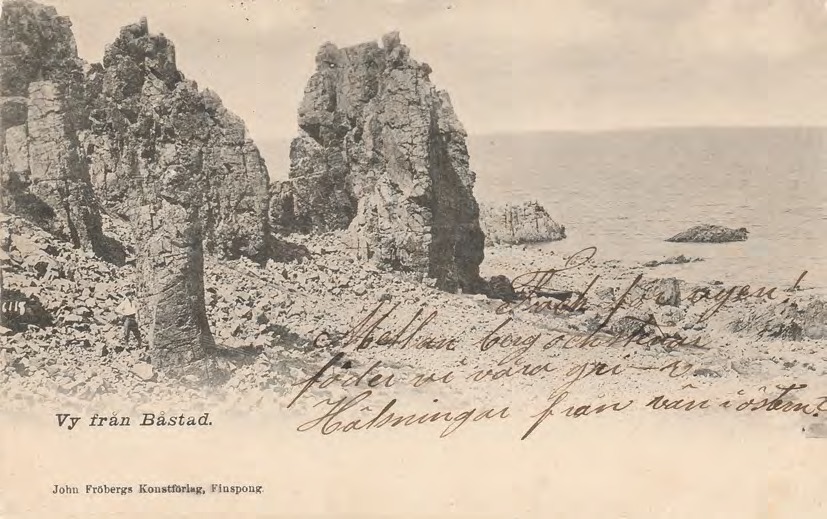 Tack för vyen!
Mellan berg och
föder vi våra
Hälsningar från vän i östern
Vy från Båstad.
John Fröbergs Konstförlag, Finspong.